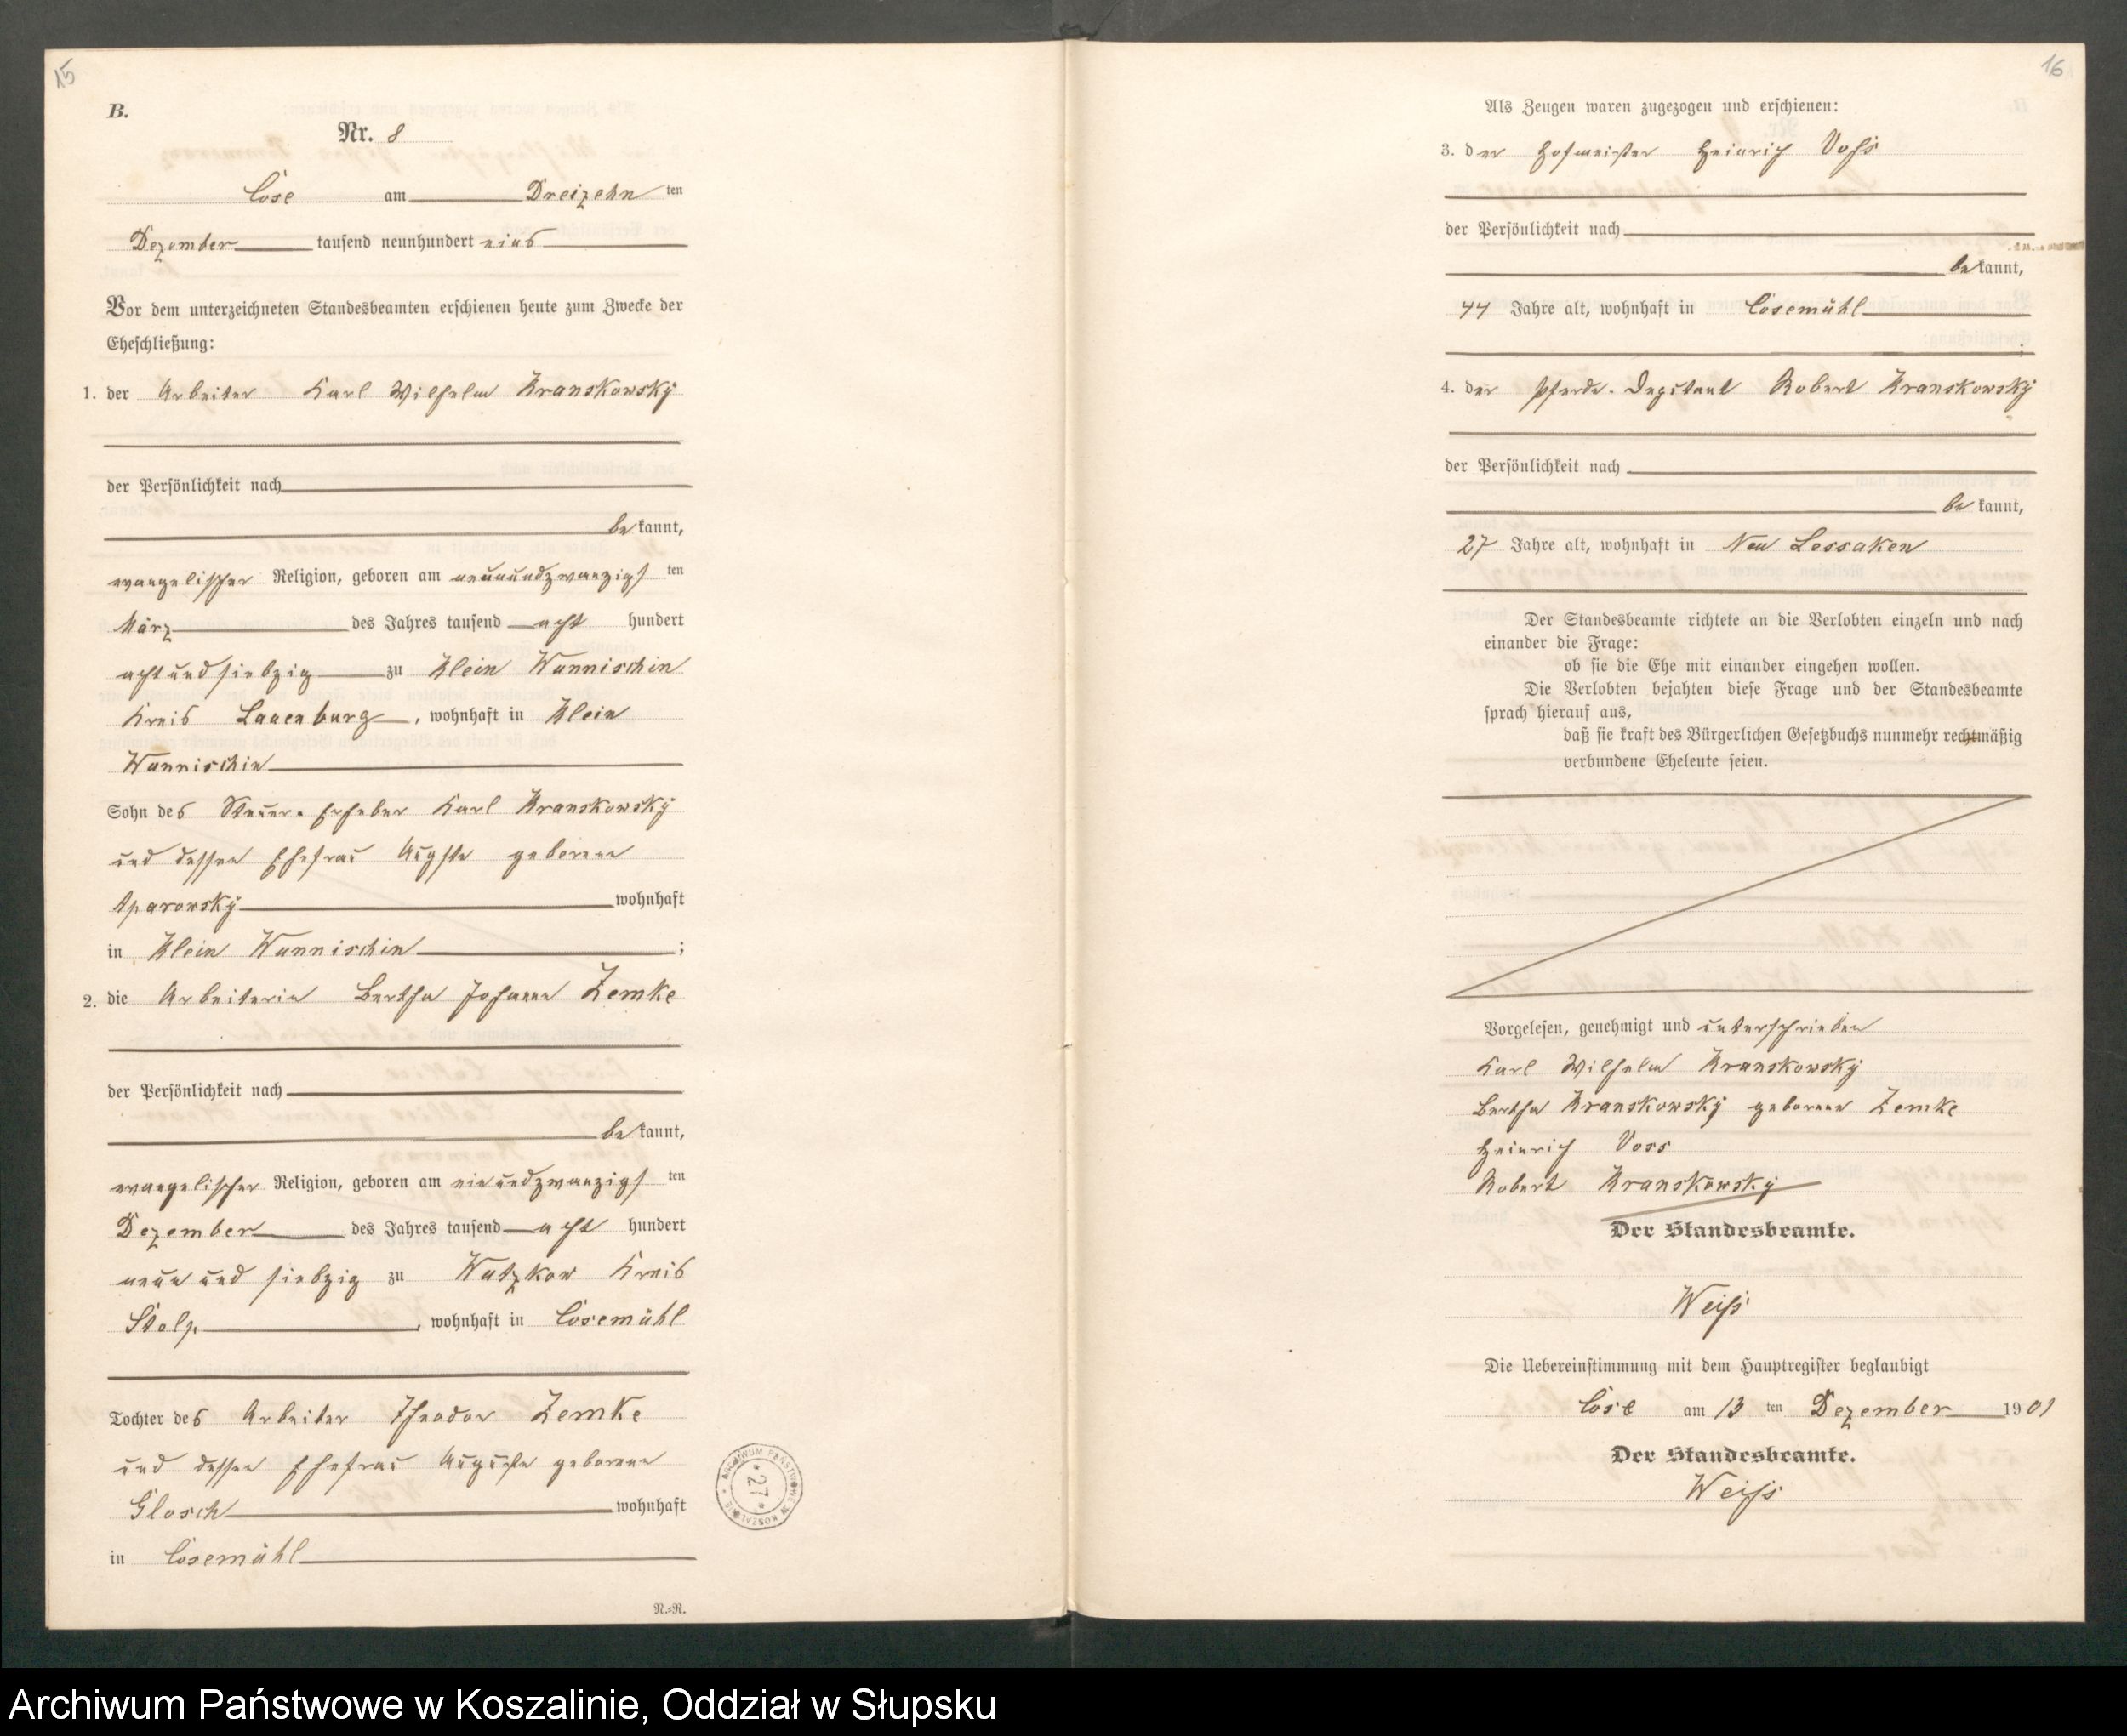 15
B.
Nr. 8
Cose am Dreizehn ten
Dezember tausend neunhundert eins
Vor dem unterzeichneten Standesbeamten erschienen heute zum Zwecke der
Eheschließung:
1. der Arbeiter Karl Wilhelm Kranskowsky
der Persönlichkeit nach
be kannt,
evangelischer Religion, geboren am neunundzwanzigs ten
März des Jahres tausend acht hundert
acht und siebzig zu Klein Wunnischin
Kreis Lauenburg, wohnhaft in Klein
Wunnischin
Sohn des Steuer-Erheber Karl Kranskowsky
und dessen Ehefrau Augste geborene
wohnhaft
in Klein Wunnischin;
2. die Arbeiterin Bertha Johanna Zemke
der Persönlichkeit nach
be kannt,
evangelischer Religion, geboren am einundzwanzigs ten
Dezember des Jahres tausend acht hundert
neun und siebzig zu Wutzkow Kreis
Stolp, wohnhaft in Cosemühl
Tochter des Arbeiter Theodor Zemke
und dessen Ehefrau Auguste geborene
Glosch wohnhaft
in Cosemühl
N.=R.
ARCHIWUM PAŃSTWOWE W KOSZALINIE
* 27 *
16
Als Zeugen waren zugezogen und erschienen:
3. der Hofmeister Heinrich Voss
der Persönlichkeit nach
be kannt,
44 Jahre alt, wohnhaft in Cosemühl
;
4. der Pferde-Deputant Robert Kranskowsky
der Persönlichkeit nach
be kannt,
27 Jahre alt, wohnhaft in Neu Lessaken
Der Standesbeamte richtete an die Verlobten einzeln und nach
einander die Frage:
ob sie die Ehe mit einander eingehen wollen.
Die Verlobten bejahten diese Frage und der Standesbeamte
sprach hierauf aus,
daß sie kraft des Bürgerlichen Gesetzbuchs nunmehr rechtmäßig
verbundene Eheleute seien.
Vorgelesen, genehmigt und unterschrieben
Karl Wilhelm Kranskowsky
Bertha Kranskowsky geborene Zemke
Heinrich Voss
Robert Kranskowsky
Der Standesbeamte.
Weiss
Die Uebereinstimmung mit dem Hauptregister beglaubigt
Cose am 13 ten Dezember 1901
Der Standesbeamte.
Weiss
Archiwum Państwowe w Koszalinie, Oddział w Słupsku